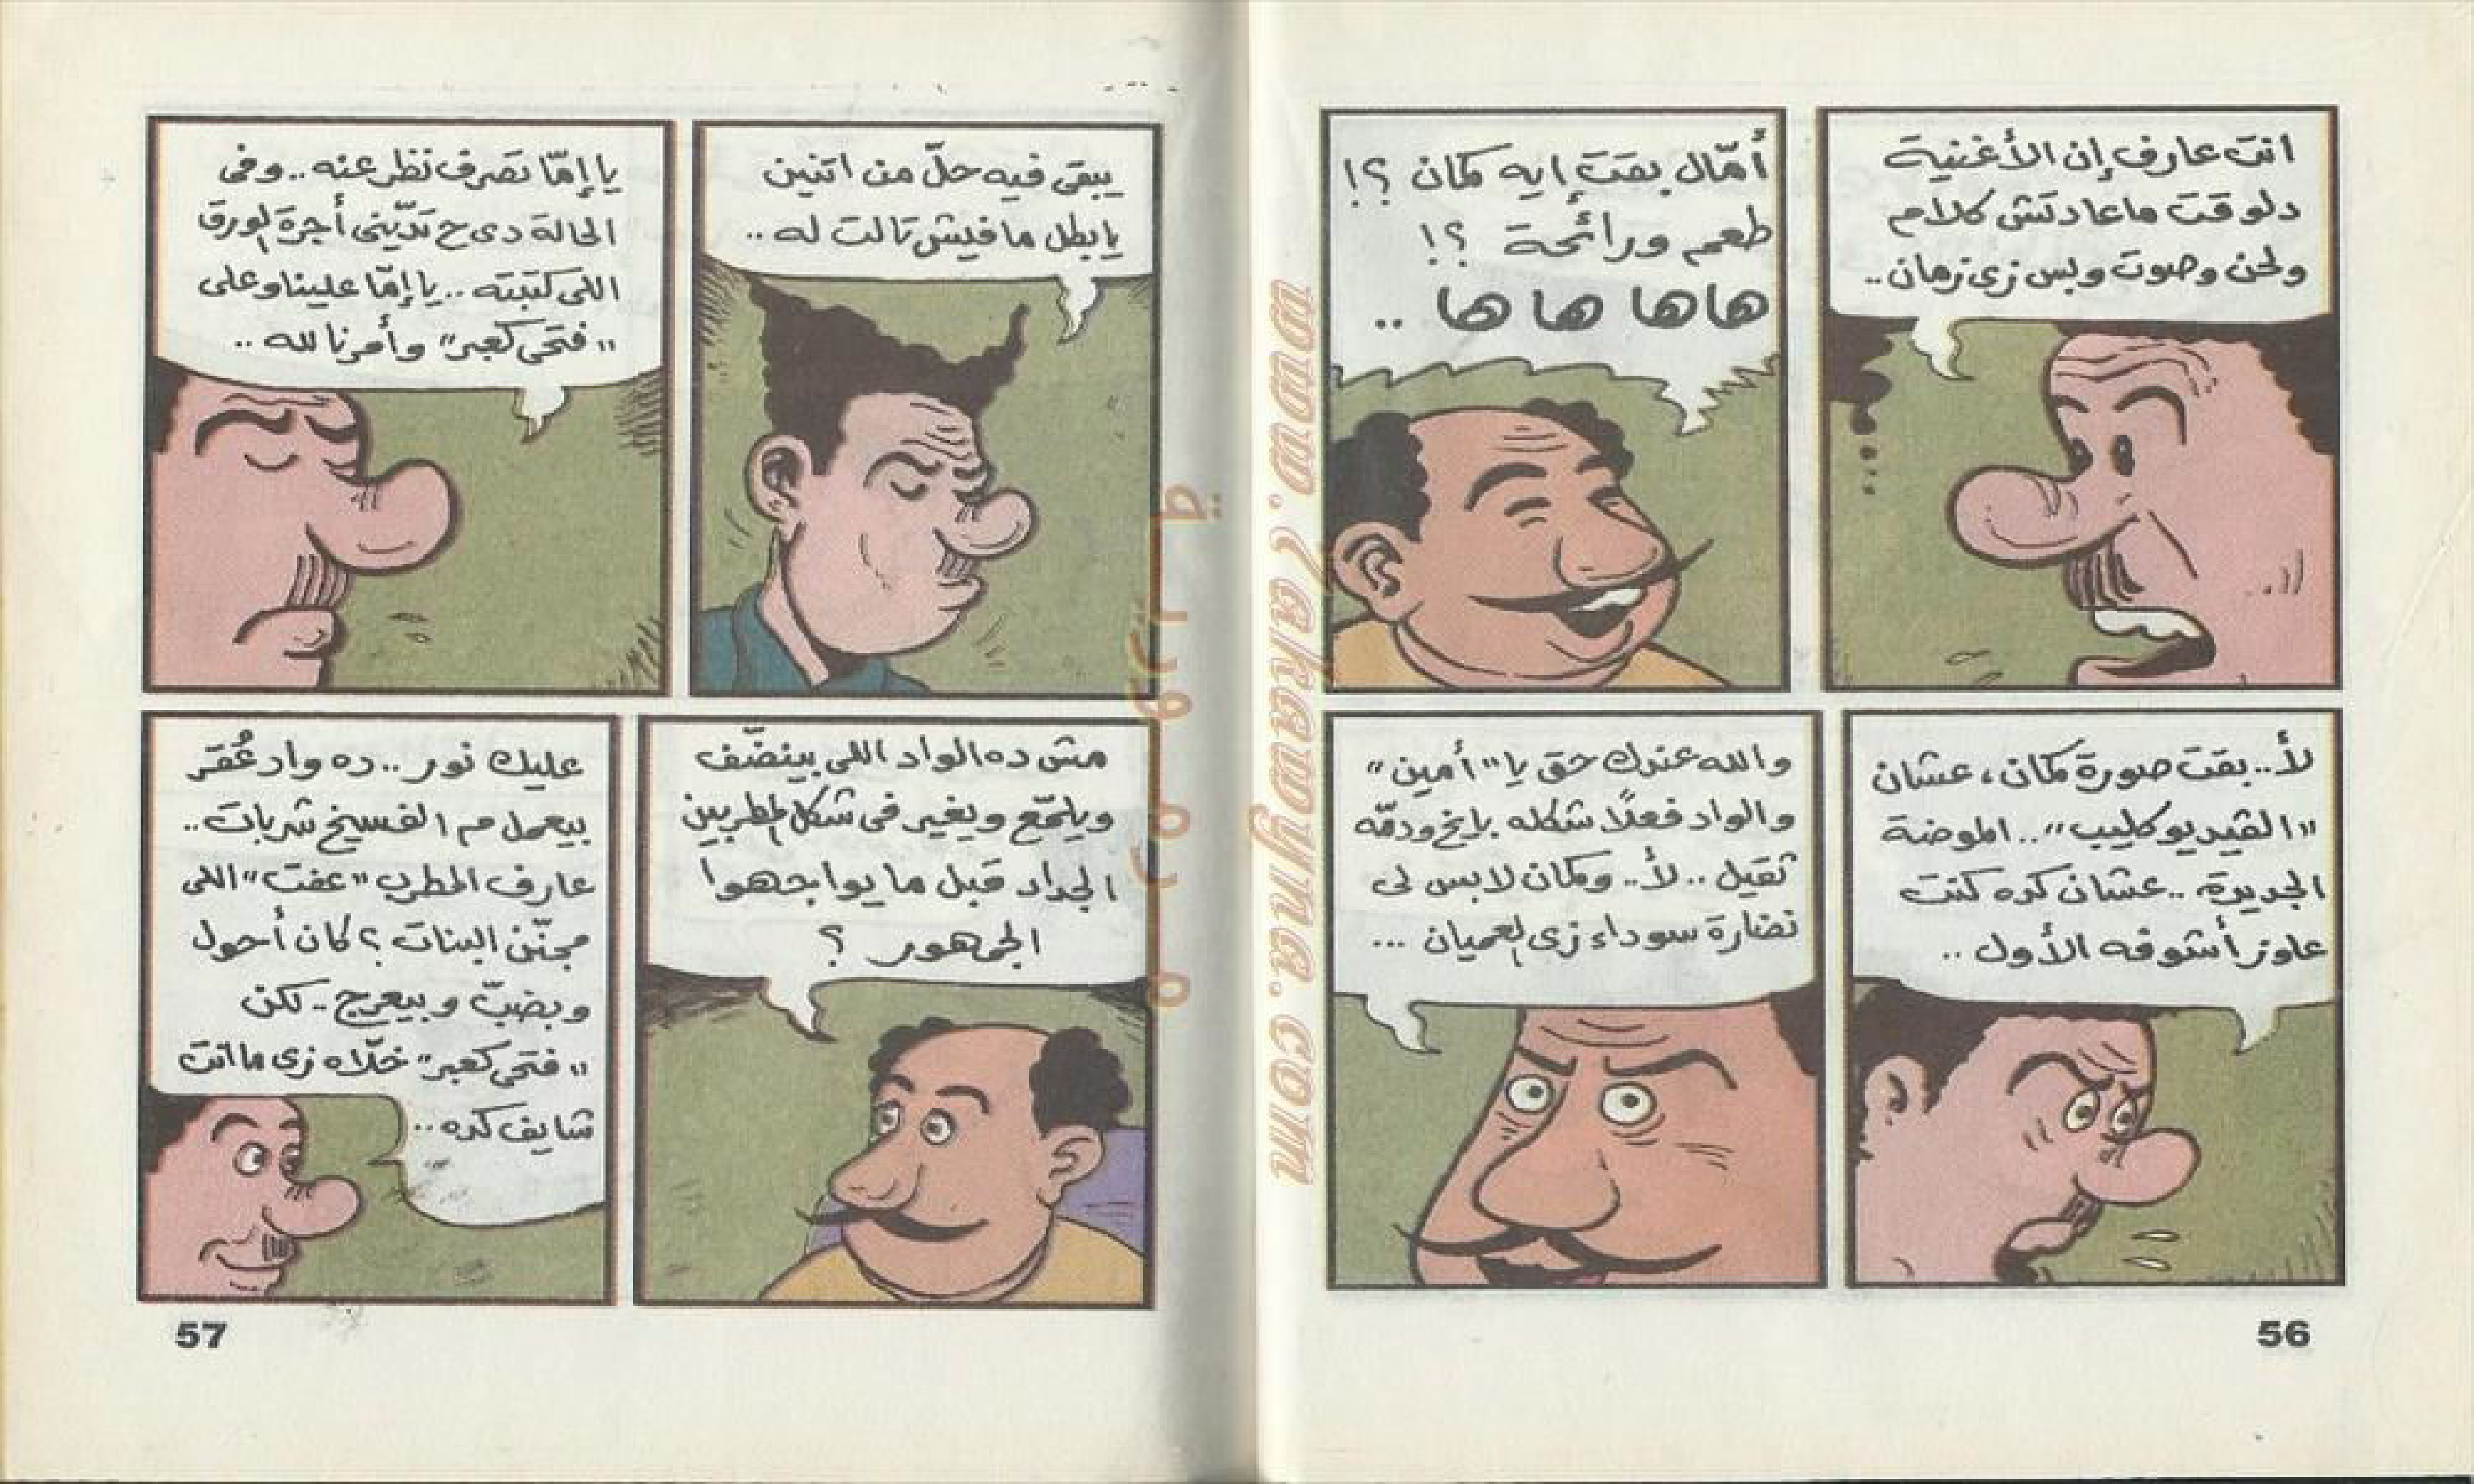 انت عارف إن الأغنية
دلوقت ماعادتش كلام
ولحن وصوت وبس زى زمان..
أمّال بقت إيه كمان ؟!
طعم ورائحة ؟!
هاها ها ها ..
لأ.. بقت صورة كمان، عشان
"الڤيديو كليب".. الموضة
الجديدة.. عشان كده كنت
عاوز أشوفه الأول ..
والله عندك حق يا "أمين"
والواد فعلًا شكله بايخ ودمّه
تقيل .. لأ.. وكمان لابس لى
نضارة سوداء زى العميان ...
56
يبقى فيه حلّ من اتنين
يا بطل مافيش تالت له ..
يا إمّا تصرف نظر عنه .. وفى
الحالة دى ح تدّينى أجرة الورق
اللى كتبته .. يا إمّا علينا وعلى
"فتحى كعبر" وأمرنا لله ..
مش ده الواد اللى بينضّف
ويلمّع ويغير فى شكل المطربين
الجداد قبل ما يواجهوا
الجمهور ؟
عليك نور .. ده واد عُقَر
بيعمل م الفسيخ شربات ..
عارف المطرب "عفت" اللى
مجنّن البنات ؟ كان أحول
وبضبّ وبيعرج .. لكن
"فتحى كعبر" خلّاه زى ما انت
شايف كده ..
57
www.7akawyna.com